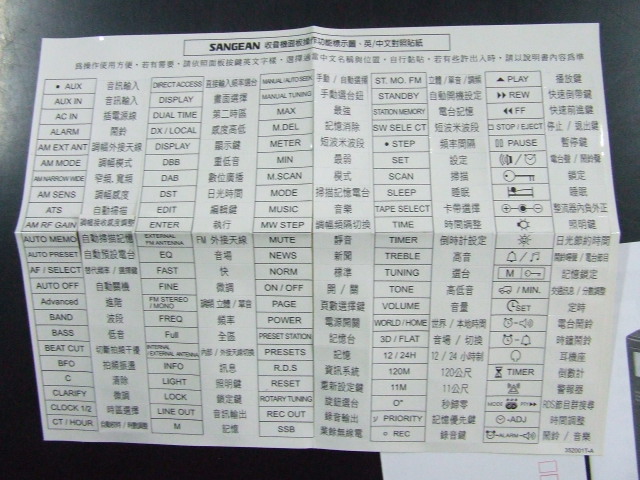 SANGEAN 收音機面板操作功能標示圖、英/中文對照貼紙
為操作使用方便，若有需要，請依照面板按鍵英文字樣，選擇適當中文名稱剪位置，自行黏貼，若有些許出入時，請以說明書內容為準
• AUX 音訊輸入 DIRECT ACCESS 直接輸入頻率選台 MANUAL/AUTO SEEK 手動/自動選播 ST. MO. FM 立體/單音/調頻 ▲ PLAY 播放鍵
AUX IN 音訊輸入 DISPLAY 畫面選擇 MANUAL TUNING 手動選台鈕 STANDBY 自動開機設定 ▶▶ REW 快速倒帶鍵
AC IN 插電源線 DUAL TIME 第二時區 MAX 最強 STATION MEMORY 電台記憶 ◀◀ FF 快速前進鍵
ALARM 鬧鈴 DX / LOCAL 感度高低 M.DEL 記憶消除 SW SELECT 短波米波段 □ STOP / EJECT 停止/退出鍵
AM EXT ANT 調幅外接天線 DISPLAY 顯示鍵 METER 短波米波段 • STEP 頻率間隔 II PAUSE 暫停鍵
AM MODE 調幅模式 DBB 重低音 MIN 最弱 SET 設定 電台聲/鬧鈴聲
AM NARROW WIDE 窄頻, 寬頻 DAB 數位廣播 M.SCAN 模式 SCAN 掃描 鎖定
AM SENS 調幅感度 DST 日光時間 MODE 掃描記憶電台 SLEEP 睡眠 睡眠
ATS 自動掃描 EDIT 編輯鍵 MUSIC 音樂 TAPE SELECT 卡帶選擇 整流器內負外正
AM RF GAIN 調幅接收感度調整 ENTER 執行 MW STEP 調幅頻隔切換 TIME 時間調整 照明鍵
AUTO MEMO 自動掃描記憶 EXTERNAL FM ANTENNA FM 外接天線 MUTE 靜音 TIMER 倒時計設定 日光節約時間
AUTO PRESET 自動預設電台 EQ 音場 NEWS 新聞 TREBLE 高音 鬧鈴嗶聲/電台節目
AF / SELECT 替代頻率/選擇鍵 FAST 快 NORM 標準 TUNING 選台 M 記憶鎖定
AUTO OFF 自動關機 FINE 微調 ON / OFF 開/關 TONE 高低音 / MIN. 交通訊息/分數調整
Advanced 進階 FM STEREO / MONO 調頻 立體/單音 PAGE 頁數選擇鍵 VOLUME 音量 SET 定時
BAND 波段 FREQ 頻率 POWER 電源開關 WORLD / HOME 世界/本地時間 電台鬧鈴
BASS 低音 Full 全區 PRESET STATION 記憶台 3D / FLAT 音場/切換 時鐘鬧鈴
BEAT CUT 切斷拍頻干擾 INTERNAL / EXTERNAL ANTENNA 內部/外接天線切換 PRESETS 記憶 12 / 24H 12 / 24 小時制 耳機座
BFO 拍頻振盪 INFO 訊息 R.D.S 資訊系統 120M 120公尺 TIMER 倒數計
C 清除 LIGHT 照明鍵 RESET 重新設定鍵 11M 11公尺 警報器
CLARIFY 微調 LOCK 鎖定鍵 ROTARY TUNING 旋鈕選台 O" 秒歸零 MODE PTY▶▶ RDS節目群搜尋
CLOCK 1/2 時區選擇 LINE OUT 音訊輸出 REC OUT 錄音輸出 PRIORITY 記憶優先鍵 -ADJ 時間調整
CT / HOUR M 記憶 SSB 業餘無線電 ○ REC 錄音鍵 -ALARM- 鬧鈴/音樂
392001T-A